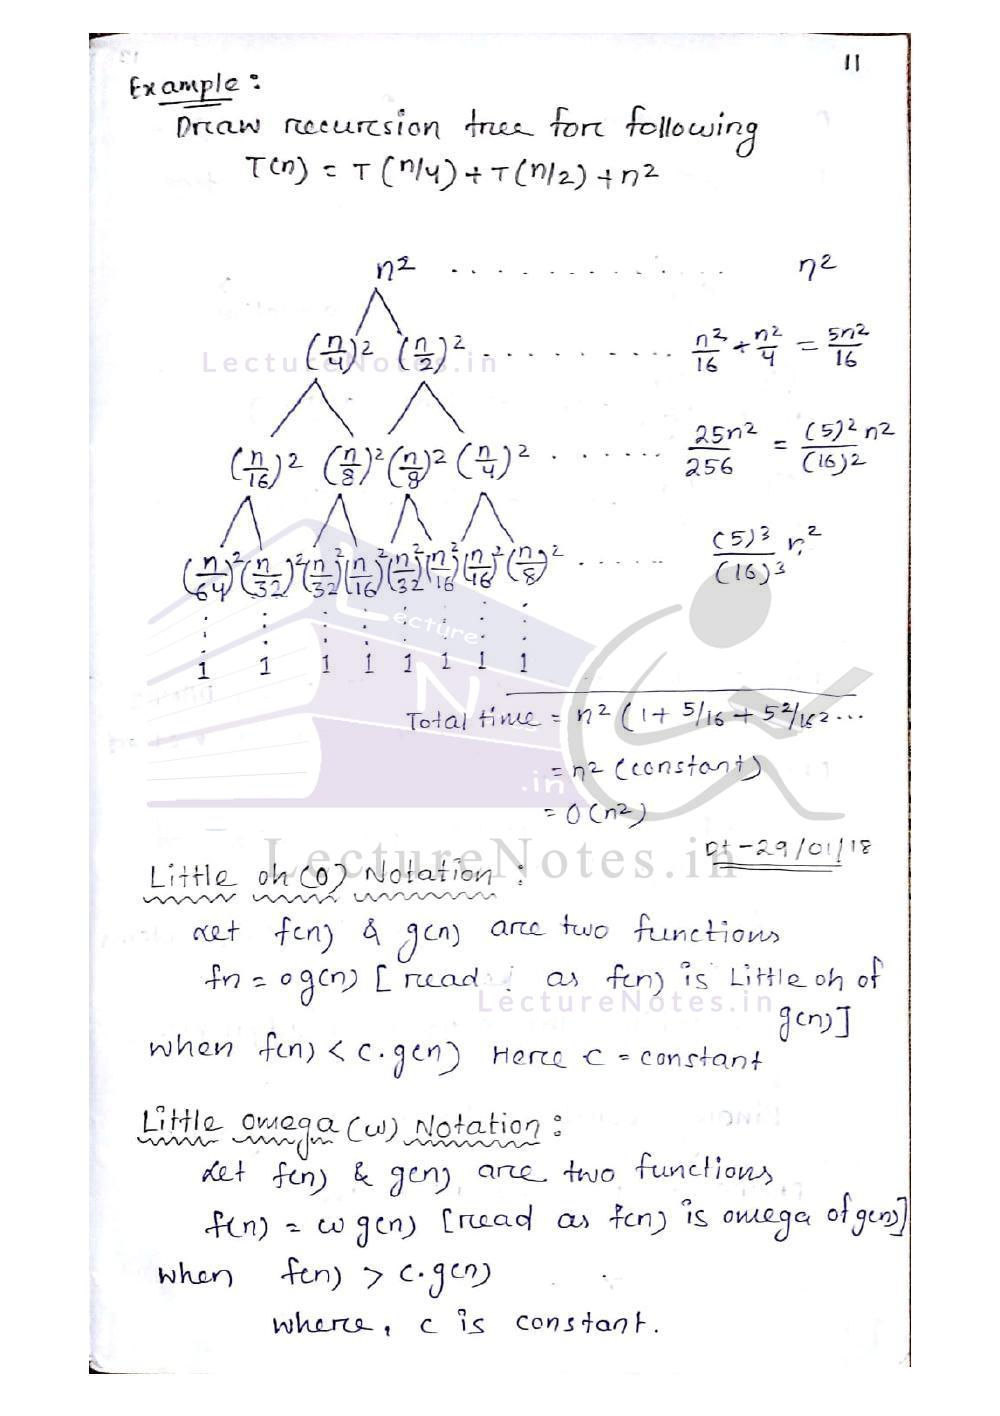 11
Example :
Draw recursion tree for following
T(n) = T(n/4) + T(n/2) + n²
n² . . . . . . . . . . . . n²
(n/4)² (n/2)² . . . . . . . . . n²/16 + n²/4 = 5n²/16
LectureNotes.in
(n/16)² (n/8)² (n/8)² (n/4)² . . . . . . 25n²/256 = (5)² n²/(16)²
(n/64)² (n/32)² (n/32)² (n/16)² (n/32)² (n/16)² (n/16)² (n/8)² . . . . . . (5)³/(16)³ n²
Lecture
1 1 1 1 1 1 1 1
N
Total time = n² (1 + 5/16 + 5²/16² ...
= n² (constant)
.in
= O(n²)
Dt - 29/01/18
LectureNotes.in
Little oh (o) Notation :
Let f(n) & g(n) are two functions
fn = o g(n) [ read : as f(n) is Little oh of
LectureNotes.in
g(n)]
when f(n) < c.g(n) Here c = constant
Little omega (ω) Notation :
Let f(n) & g(n) are two functions
f(n) = ω g(n) [read as f(n) is omega of g(n)]
when f(n) > c.g(n)
where, c is constant.